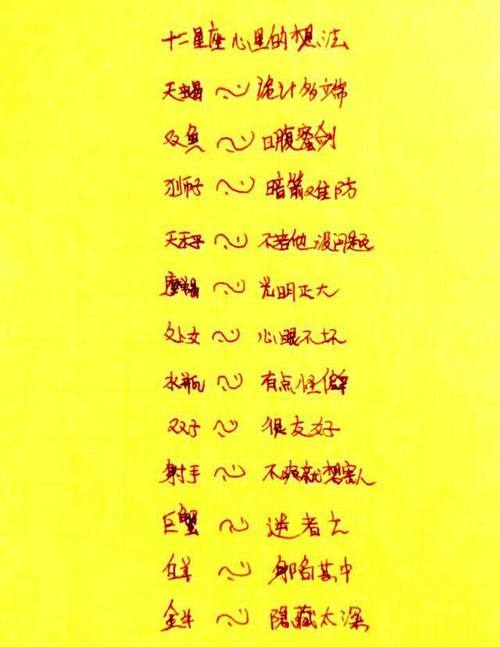 十二星座心里的想法
天蝎~诡计多端
双鱼~口腹蜜剑
狮子~暗箭难防
天平~不惹他没问题
摩羯~光明正大
处女~心眼不坏
水瓶~有点怪僻
双子~很友好
射手~不爽就想害人
巨蟹~逆者亡
白羊~身陷其中
金牛~隐藏太深